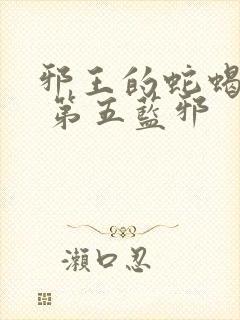 邪王的蛇蝎
第五藍邪
瀨口忍